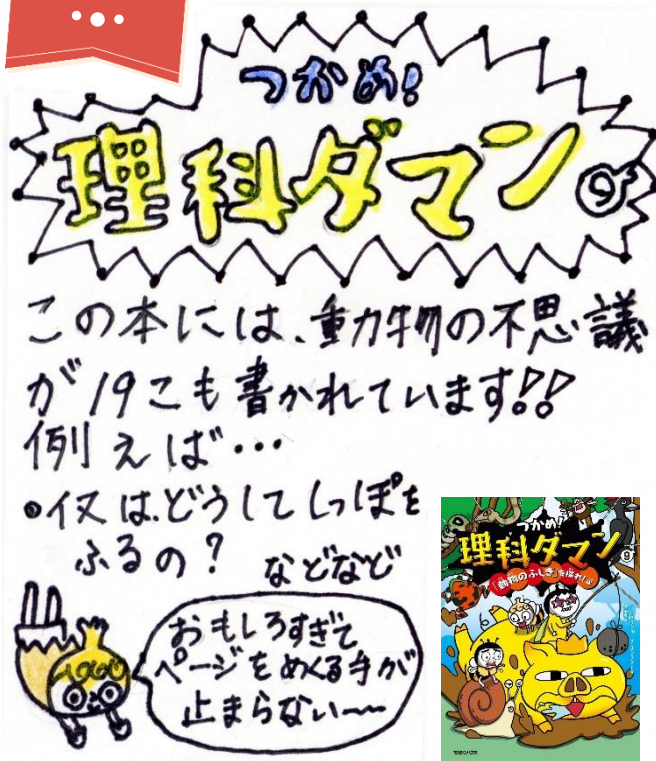 つかめ!
理科ダマン⑨
この本には、動物の不思議
が19こも書かれています!!
例えば…
•犬はどうしてしっぽを
ふるの?
などなど
おもしろすぎて
ページをめくる手が
止まらない〜〜
つかめ!
理科ダマン9
「動物のふしぎ」を探れ!編
マガジンハウス